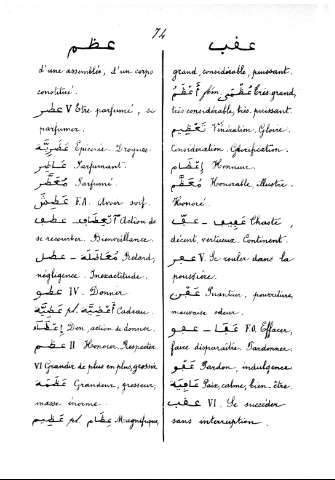 74
عظم
d'une assemblée, d'un corps
constitué.
عطر V Etre parfumé, se
parfumer.
Epicerie. Drogues.
عاطر Parfumant.
معطّر Parfumé.
عطش F.A. Avoir soif.
عطف — Action de
se recourber. Bienveillance.
عطل — Retard,
négligence. Inexactitude.
عطو IV. Donner
عطيّة pl. أعطية Cadeau
إعطاء Don, action de donner.
عظم II Honorer. Respecter
VI Grandir de plus en plus, grossir
عظمة Grandeur, grosseur,
masse énorme.
عظيم pl. عظام Magnifique,
عقب
grand, considérable, puissant.
أعظم fém. عظمى très grand,
très considérable, très puissant.
تعظيم Vénération. Gloire.
Considération. Glorification.
إعظام Honneur.
معظّم Honorable, illustre.
Honoré.
عفّ — عفيف Chaste,
décent, vertueux. Continent.
عفر V. Se rouler dans la
poussière.
Puanteur, pourriture,
mauvaise odeur.
عفو — عفا F.O. Effacer,
faire disparaître. Pardonner.
عفو Pardon, indulgence
عافية Paix, calme, bien-être.
عقب VI. Se succéder
sans interruption.